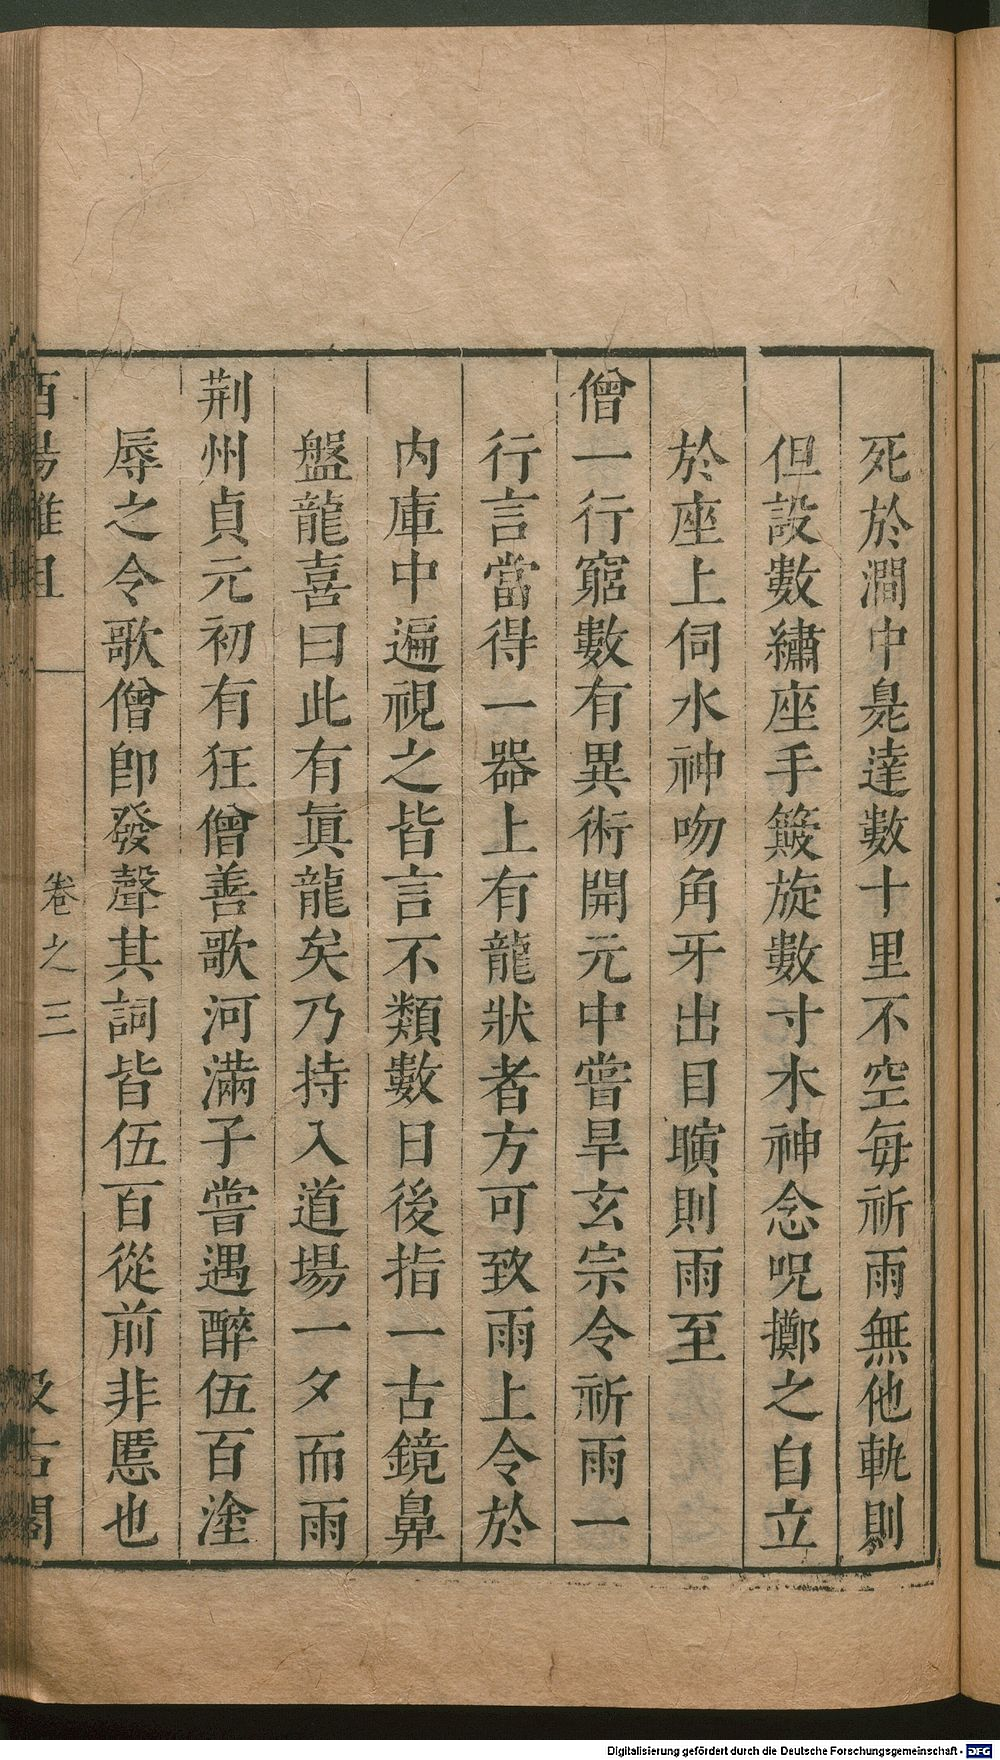 死於澗中臭達數十里不空每祈雨無他軌則
但設數繡座手簸旋數寸木神念呪擲之自立
於座上伺水神吻角牙出目瞚則雨至
僧一行窮數有異術開元中嘗旱玄宗令祈雨一
行言當得一器上有龍狀者方可致雨上令於
内庫中遍視之皆言不類數日後指一古鏡鼻
盤龍喜曰此有眞龍矣乃持入道場一夕而雨
荆州貞元初有狂僧善歌河滿子嘗遇醉伍百塗
辱之令歌僧卽發聲其詞皆伍百從前非慝也
酉陽雜俎 卷之三 汲古閣
Digitalisierung gefördert durch die Deutsche Forschungsgemeinschaft - DFG